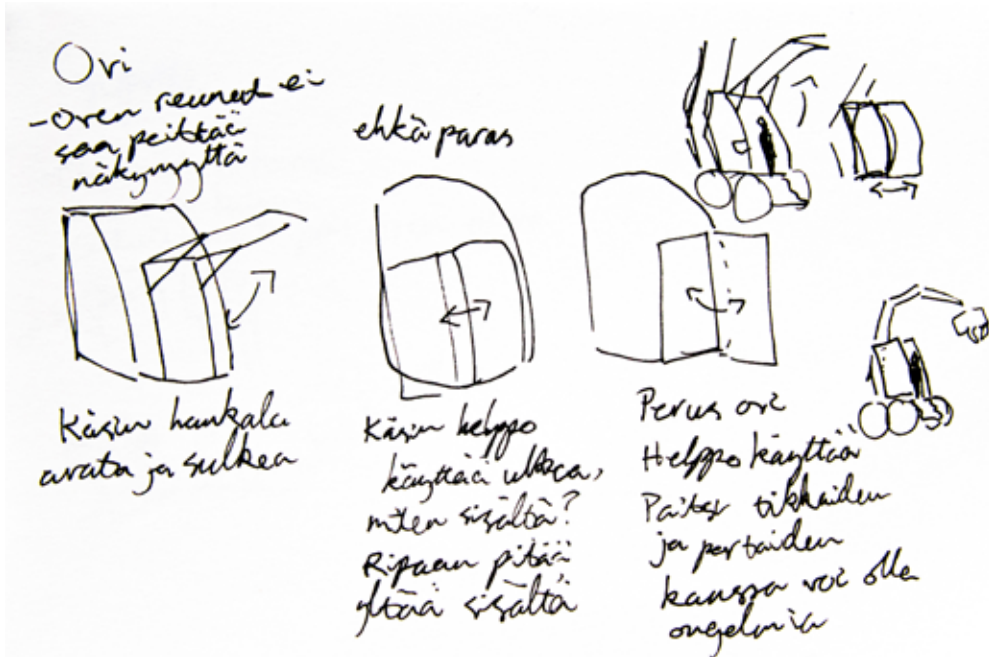 Ovi
- Oven reunat ei
saa peittää
näkyvyyttä
Käsin hankala
avata ja sulkea
ehkä paras
Käsin helppo
käyttää ulkoa,
miten sisältä?
Ripaan pitää
yltää sisältä
Perus ovi
Helppo käyttää
Paitsi tikkaiden
ja portaiden
kanssa voi olla
ongelmia